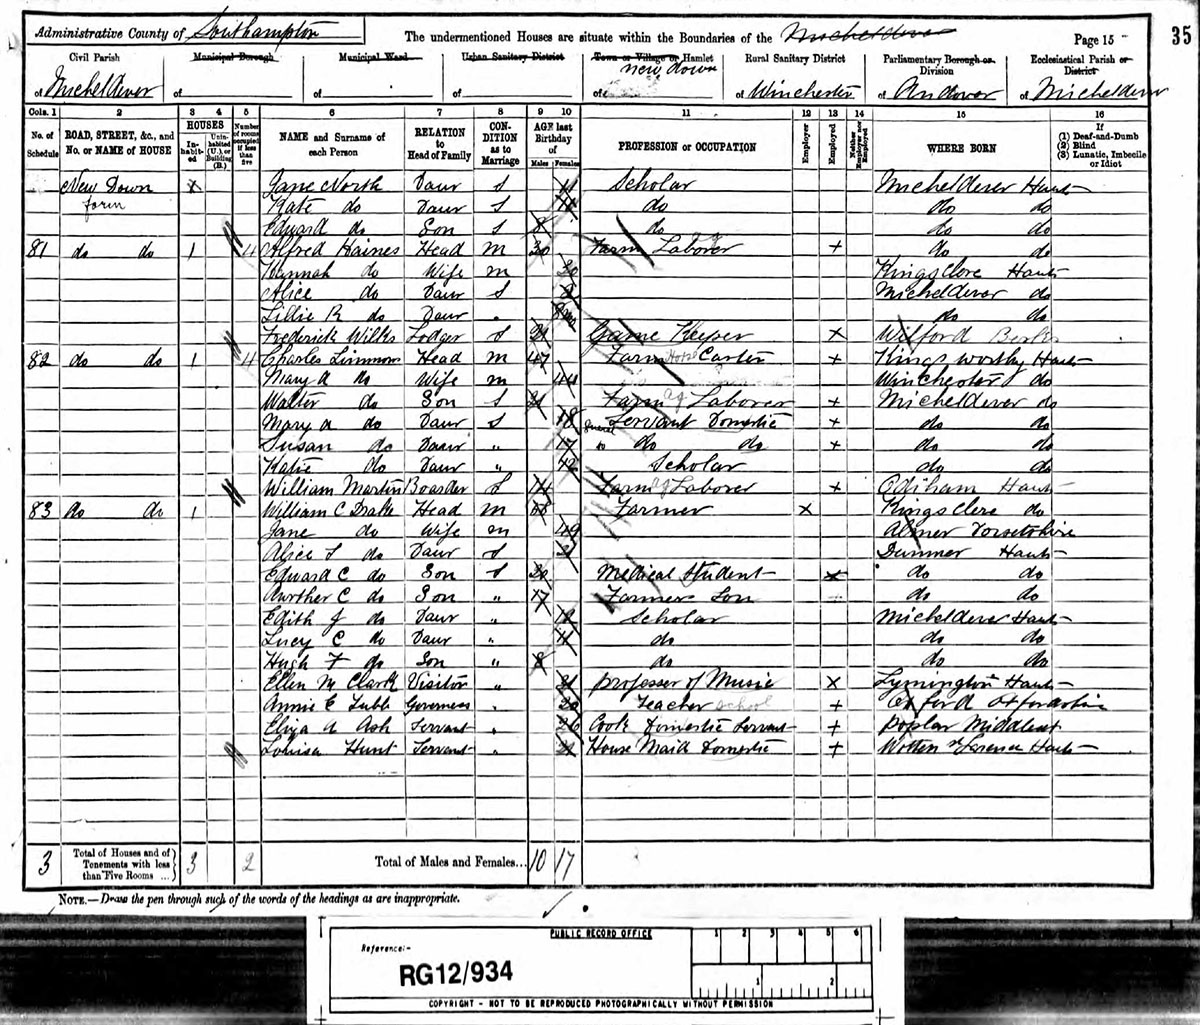 Administrative County of Southampton
The undermentioned Houses are situate within the Boundaries of the Micheldever
Page 15
35
Civil Parish
of Micheldever
Municipal Borough
of
Municipal Ward
of
Urban Sanitary District
of
Town or Village or Hamlet
New Down
of
Rural Sanitary District
of Winchester
Parliamentary Borough or Division
of Andover
Ecclesiastical Parish or District
of Micheldever
Cols. 1 2 3 4 5 6 7 8 9 10 11 12 13 14 15 16
No. of Schedule
ROAD, STREET, &c., and No. or NAME of HOUSE
HOUSES
Inhabited
Uninhabited (U.), or Building (B.)
Number of rooms occupied if less than five
NAME and Surname of each Person
RELATION to Head of Family
CONDITION as to Marriage
AGE last Birthday of
Males
Females
PROFESSION or OCCUPATION
Employer
Employed
Neither Employer nor Employed
WHERE BORN
If
(1) Deaf-and-Dumb
(2) Blind
(3) Lunatic, Imbecile or Idiot
New Down X Jane North Daur S 11 Scholar Micheldever Hants
farm Kate do Daur S do do do
Edward do Son S 8 do do do
81 do do 1 4 Alfred Haines Head M 30 Farm Laborer + do do
Hannah do Wife M 30 Kingsclere Hants
Alice do Daur S Micheldever do
Lillie R do Daur do do
Frederick Wilks Lodger S 21 Game Keeper X Berks
82 do do 1 4 Charles Head M 47 Farm Carter + Kings Worthy Hants
Mary A do Wife M 44 Winchester do
Walter do Son S 21 Farm Ag Laborer + Micheldever do
Mary A do Daur S 18 General Servant Domestic + do do
Susan do Daur " 17 do do + do do
Katie do Daur " 12 Scholar do do
William Martin Boarder S Farm Ag Laborer + Odiham Hants
83 Do do 1 William C Drake Head M Farmer X Kingsclere do
Jane do Wife M 49 Dorsetshire
Alice S do Daur S Dummer Hants
Edward C do Son S 20 Medical Student X do do
Aurther C do Son " 17 Farmers Son do do
Edith J do Daur " 12 Scholar Micheldever Hants
Lucy C do Daur " 11 do do do
Hugh F do Son " 8 do do do
Ellen M Clark Visitor " 21 Professor of Music X Lymington Hants
Annie E Governess " Teacher school + Oxford Oxfordshire
Eliza A Ash Servant " 26 Cook Domestic Servant + Poplar Middlesex
Louisa Hunt Servant " 21 House Maid Domestic + Hants
3 Total of Houses and of Tenements with less than Five Rooms ... 3 2 Total of Males and Females... 10 17
NOTE.—Draw the pen through such of the words of the headings as are inappropriate.
PUBLIC RECORD OFFICE
Reference:-
RG12/934
1 2 3 4 5 6
1 2
COPYRIGHT - NOT TO BE REPRODUCED PHOTOGRAPHICALLY WITHOUT PERMISSION